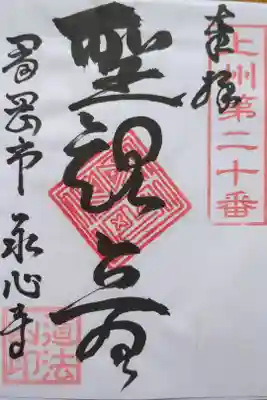 上州第二十番
奉拝
聖観世音
富岡市 永心寺